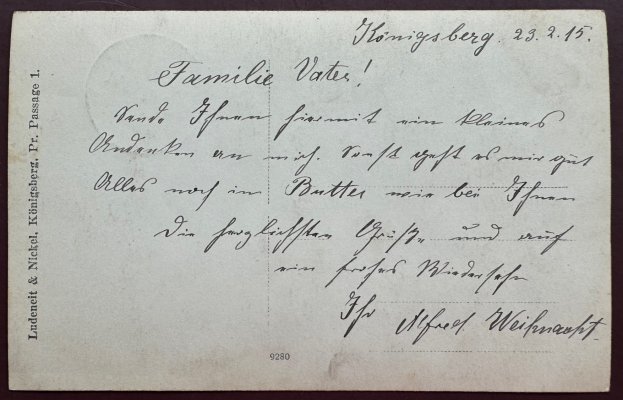 Königsberg. 23.2.15.
Familie Vater!
Sende Ihnen hiermit ein kleines
Andenken an mich. Sonst geht es mir gut
Alles noch in Butter wie bei Ihnen
Die herzlichsten Grüße und auf
ein frohes Wiedersehn
Ihr
Alfred Weihnacht.
Ludeneit & Nickel, Königsberg, Pr. Passage 1.
9280